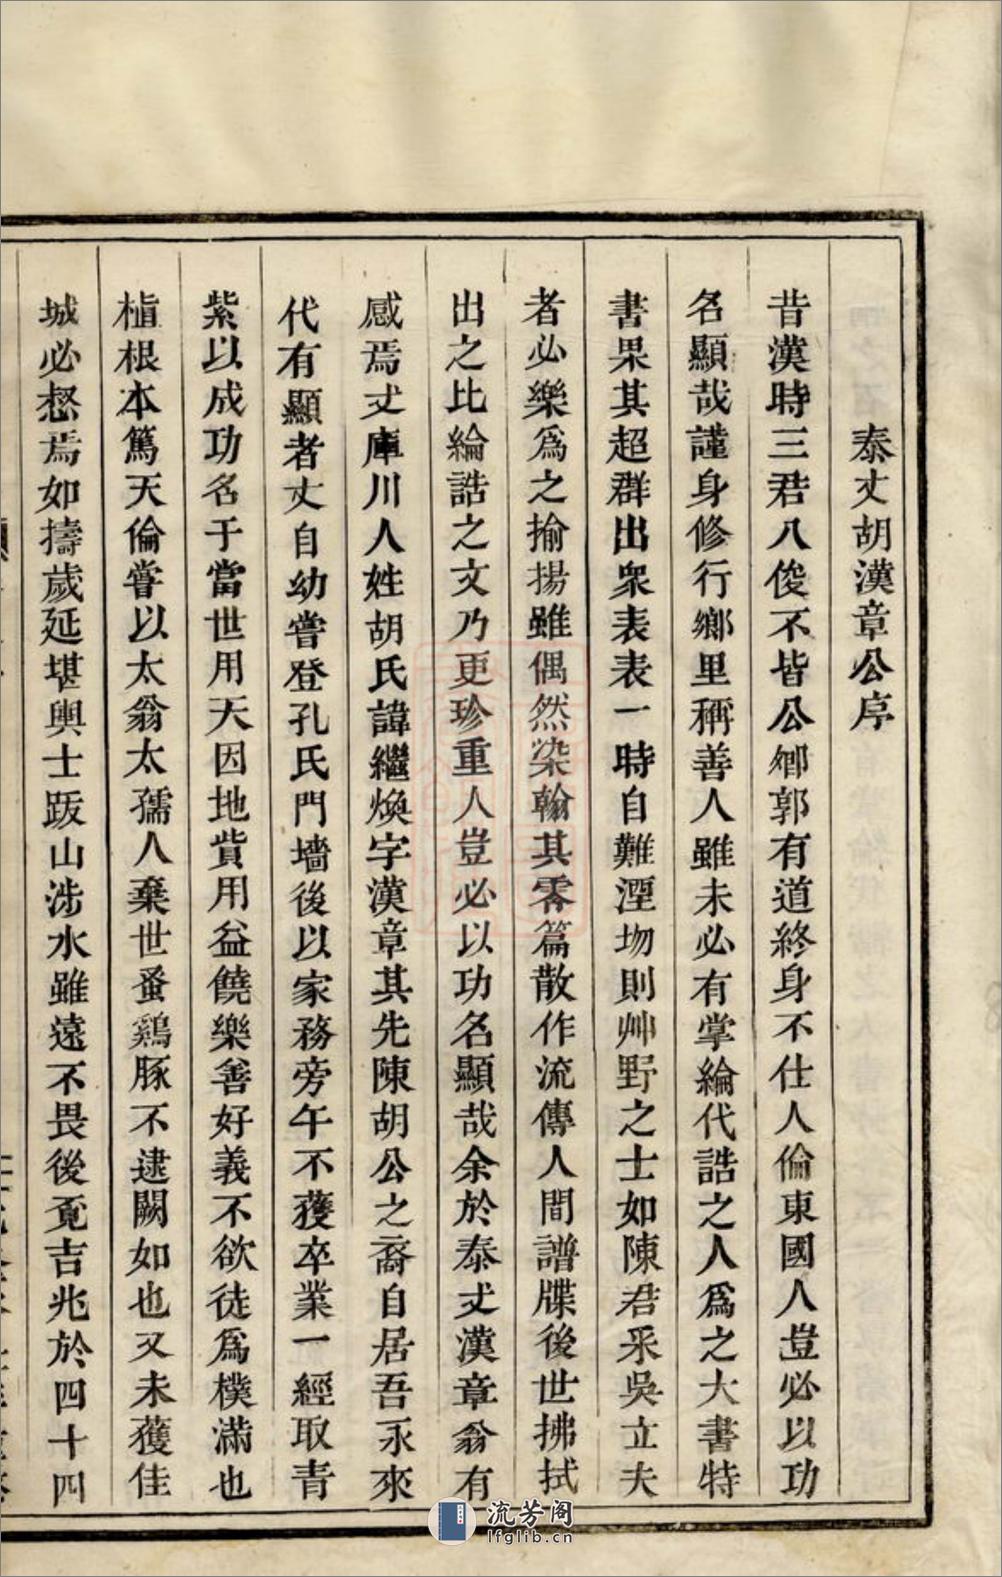 泰丈胡漢章公序
昔漢時三君八俊不皆公卿郭有道終身不仕人倫東國人豈必以功
名顯哉謹身修行鄉里稱善人雖未必有掌綸代誥之人爲之大書特
書果其超群出衆表表一時自難湮沕則艸野之士如陳君采吳立夫
者必樂爲之揄揚雖偶然染翰其零篇散作流傳人間譜牒後世拂拭
出之比綸誥之文乃更珍重人豈必以功名顯哉余於泰丈漢章翁有
感焉丈庫川人姓胡氏諱繼煥字漢章其先陳胡公之裔自居吾永來
代有顯者丈自幼嘗登孔氏門墻後以家務旁午不獲卒業一經取青
紫以成功名于當世用天因地貲用益饒樂善好義不欲徒爲樸滿也
植根本篤天倫嘗以太翁太孺人棄世蚤鷄豚不逮闕如也又未獲佳
城必惄焉如擣歲延堪輿士跋山涉水雖遠不畏後覓吉兆於四十四
流芳阁
lfglib.cn